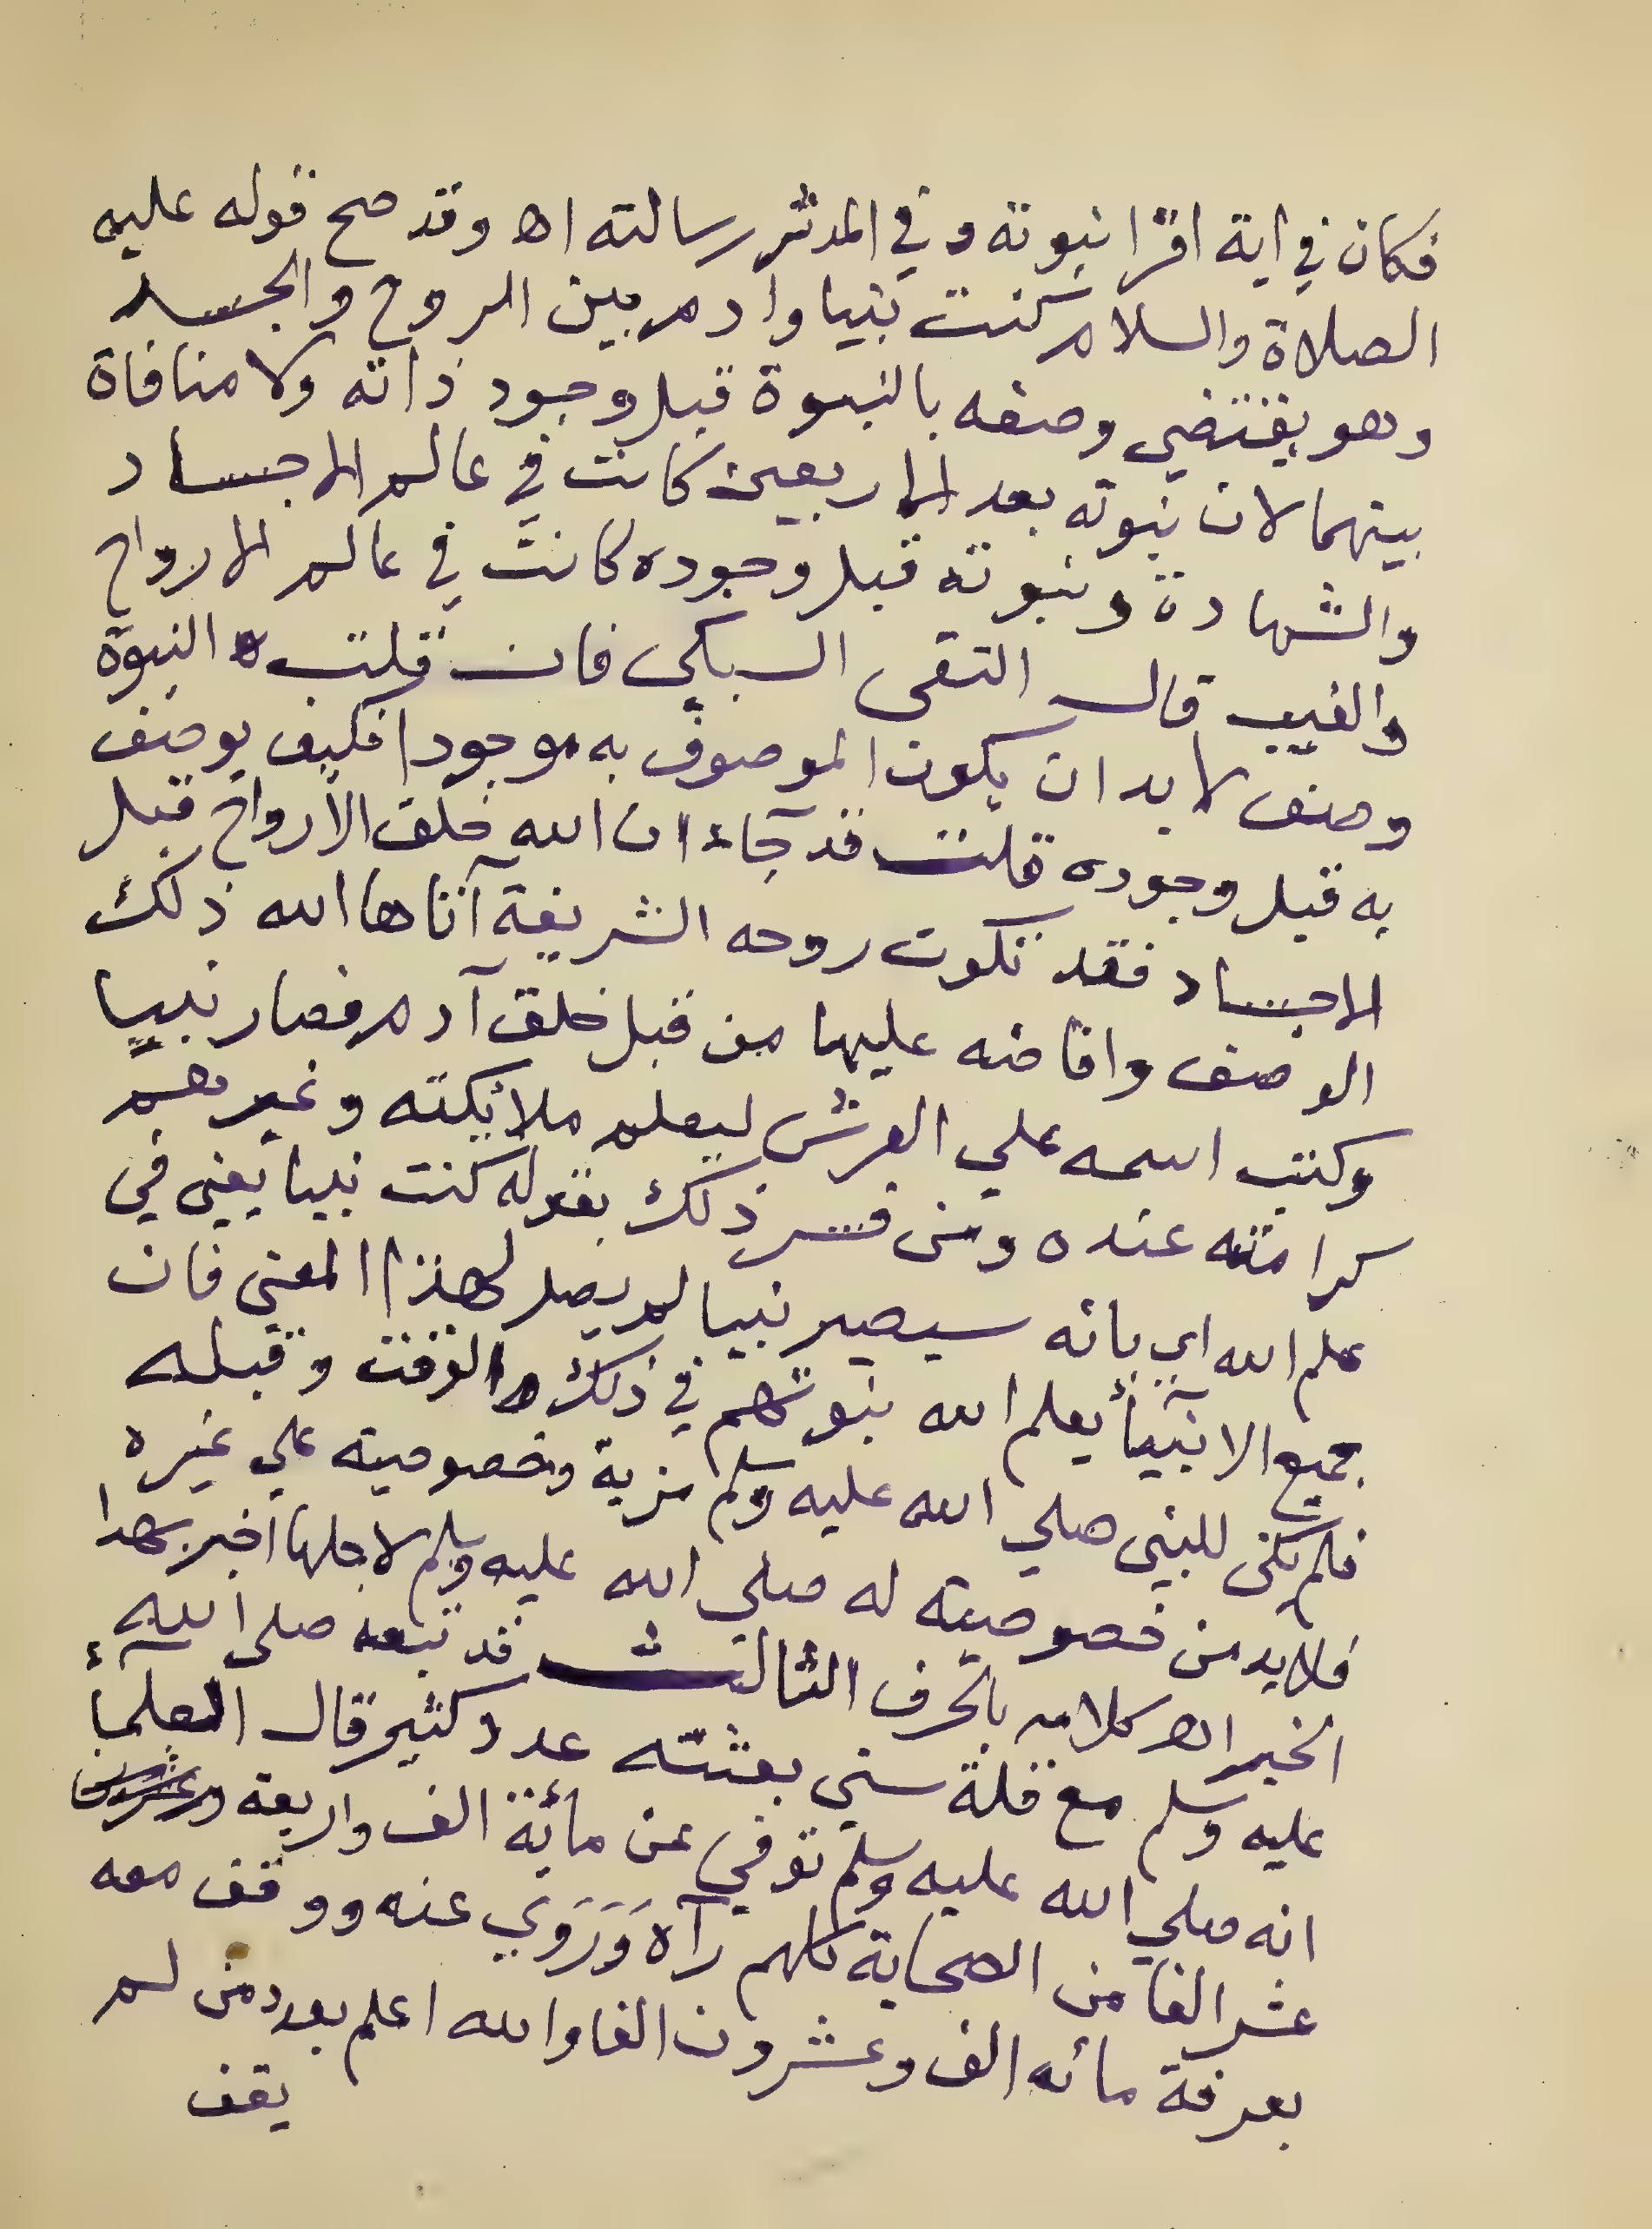 فكان في اية اقرا نبوته وفي المدثر رسالته اه وقد صح قوله عليه
الصلاة والسلام كنت نبيا وادم بين الروح والجسد
وهو يقتضي وصفه بالنبوة قبل وجود ذاته ولا منافاة
بينهما لان نبوته بعد الاربعين كانت في عالم الاجساد
والشهادة ونبوته قبل وجوده كانت في عالم الارواح
والغيب قال التقى السبكى فان قلت النبوة
وصف لا بد ان يكون الموصوف به موجودا فكيف يوصف
به قبل وجوده قلت قد جآء ان الله خلق الارواح قبل
الاجساد فقد تكون روحه الشريفة آتاها الله ذلك
الوصف وافاضه عليها من قبل خلق آدم فصار نبيا
وكتب اسمه علي العرش ليعلم ملائكته وغيرهم
كرامته عنده ومن فسر ذلك بقوله كنت نبيا يعني في
علم الله اي بانه سيصير نبيا لم يصل لهذا المعني فان
جميع الانبيآء يعلم الله نبوتهم في ذلك الوقت وقبله
فلم يكن للنبي صلي الله عليه وسلم مزية وخصوصية علي غيره
فلا بد من خصوصية له صلي الله عليه وسلم لاجلها اخبر بهدا
الخبر اه كلامه بالحرف الثالث قد تبعه صلى الله
عليه وسلم مع قلة سني بعثته عدد كثير قال العلمآء
انه صلي الله عليه وسلم توفي عن مائة الف واربعة وعشرون
عشر الفا من الصحابة كلهم رآه وَرَوَي عنه ووقف معه
بعرفة مائه الف وعشرون الفا والله اعلم بعدد من لم
يقف